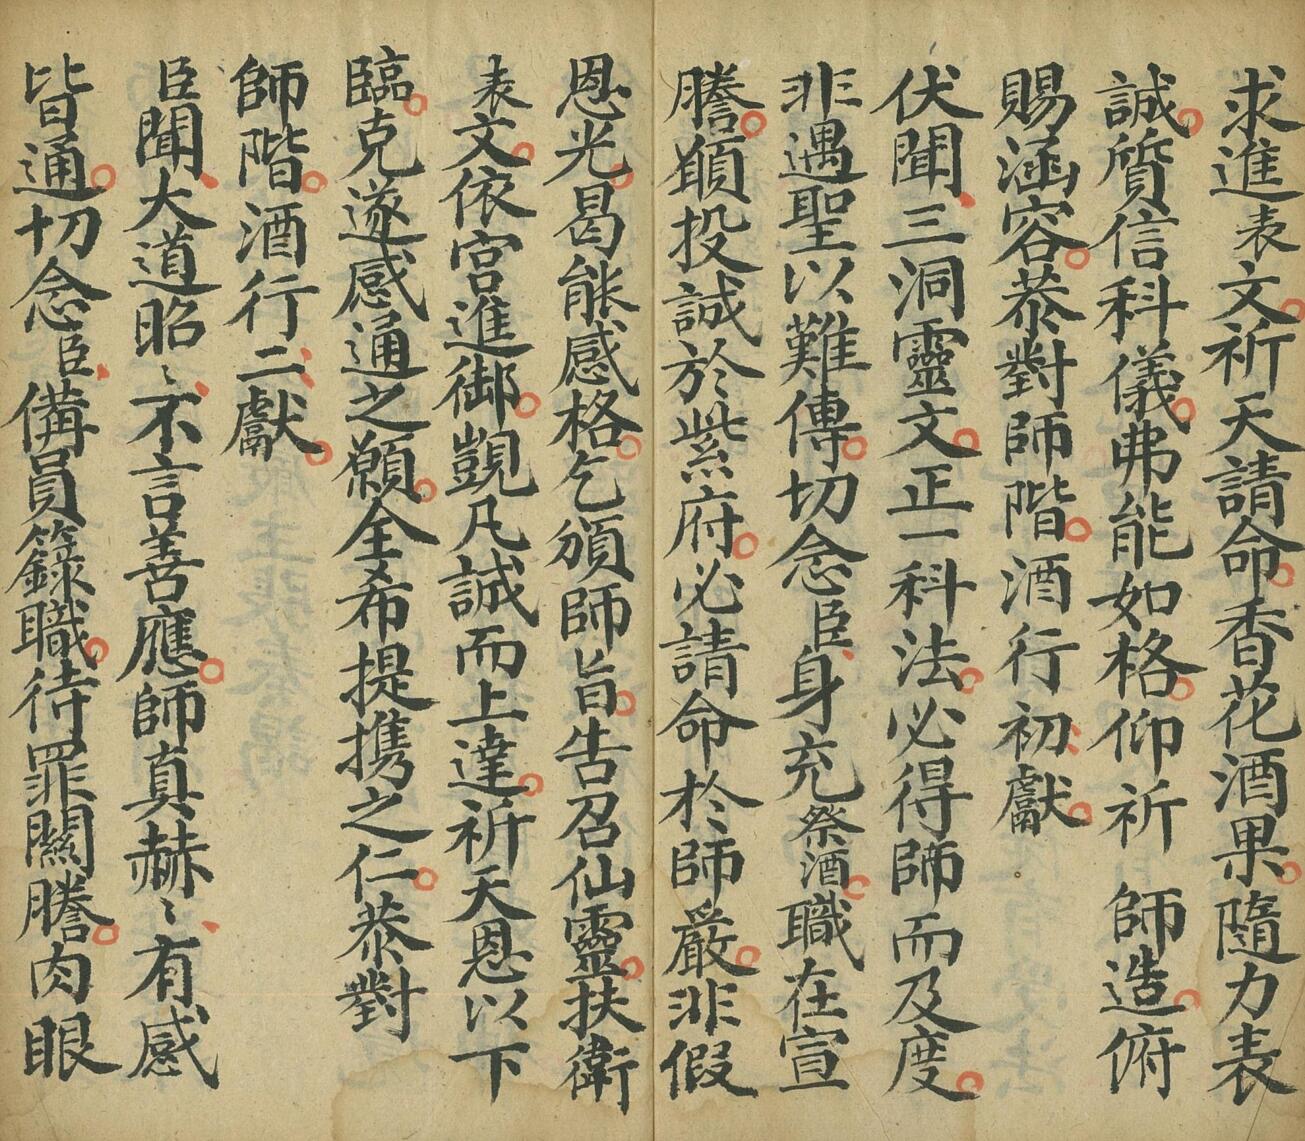 求進表文祈天請命香花酒果隨力表
誠質信科儀弗能如格仰祈師造俯
賜涵容恭對師階酒行初獻
伏聞三洞靈文正一科法必得師而及度
非遇聖以難傳切念臣身充祭酒職在宣
謄頋投誠於紫府必請命於師嚴非假
恩光曷能感格乞頒師旨告召仙靈扶衛
表文依宮進御覬凡誠而上達祈天恩以下
臨克遂感通之願全希提携之仁恭對
師階酒行二獻
臣聞大道昭〻不言善應師真赫〻有感
皆通切念臣俻員籙職待罪關謄肉眼